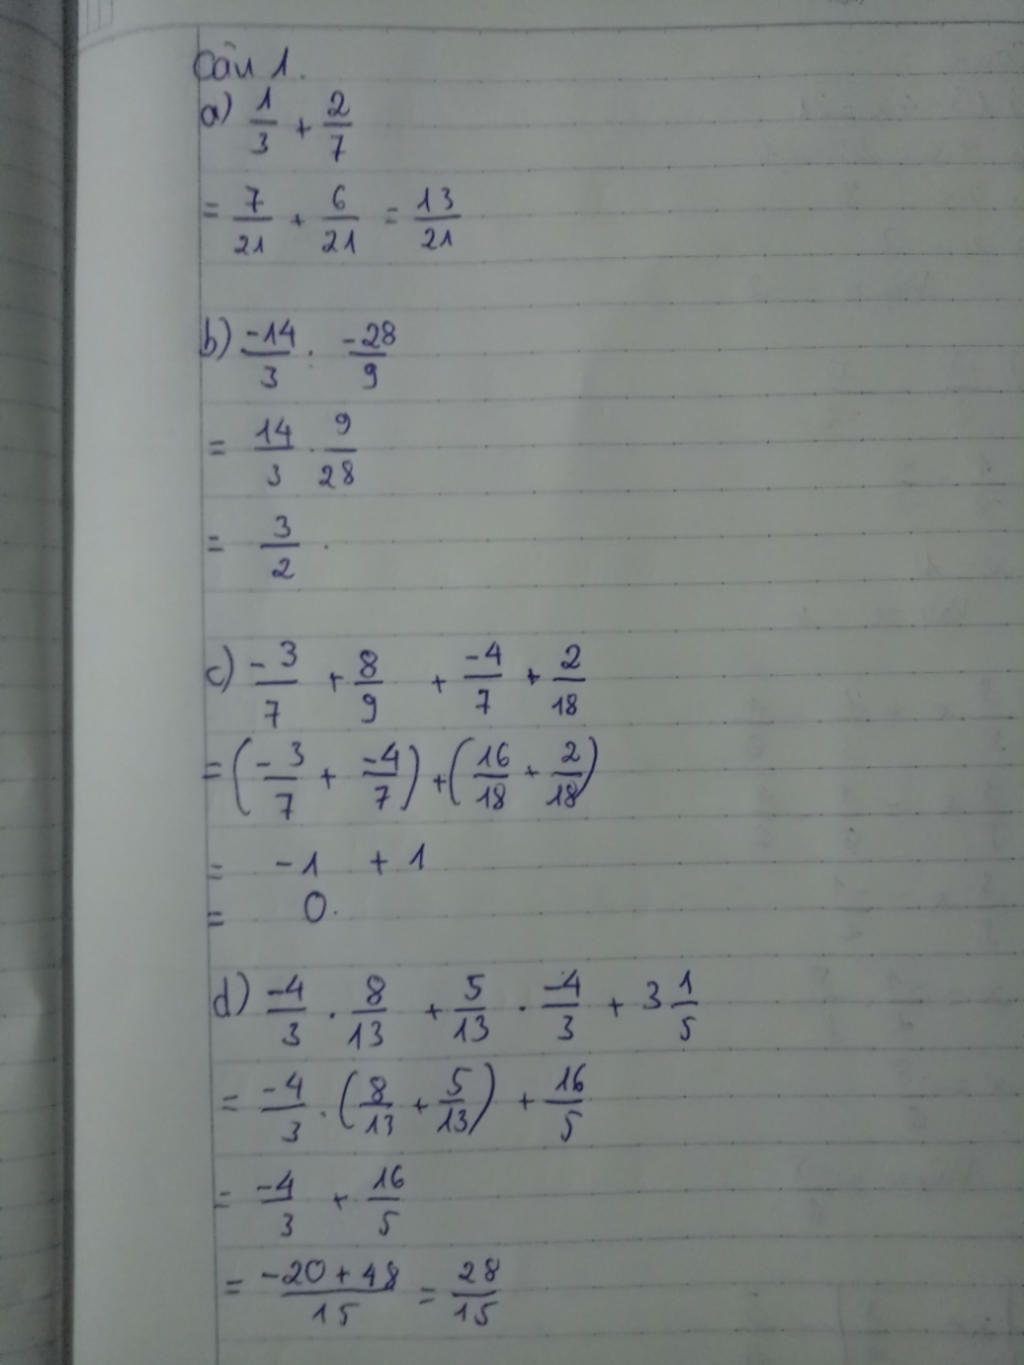 Câu 1.
a) 1/3 + 2/7
= 7/21 + 6/21 = 13/21
b) -14/3 : -28/9
= 14/3 . 9/28
= 3/2 .
c) -3/7 + 8/9 + -4/7 + 2/18
= (-3/7 + -4/7) + (16/18 + 2/18)
= -1 + 1
= 0.
d) -4/3 . 8/13 + 5/13 . -4/3 + 3 1/5
= -4/3 . (8/13 + 5/13) + 16/5
= -4/3 + 16/5
= -20+48/15 = 28/15